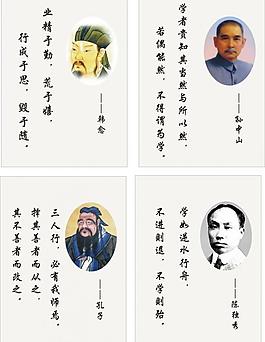 业精于勤，荒于嬉，
行成于思，毁于随。
——韩愈
学者贵知其当然与所以然，
若偶能然，不得谓为学。
——孙中山
三人行，必有我师焉，
择其善者而从之，
其不善者而改之。
——孔子
学如逆水行舟，
不进则退，不学则殆。
——陈独秀